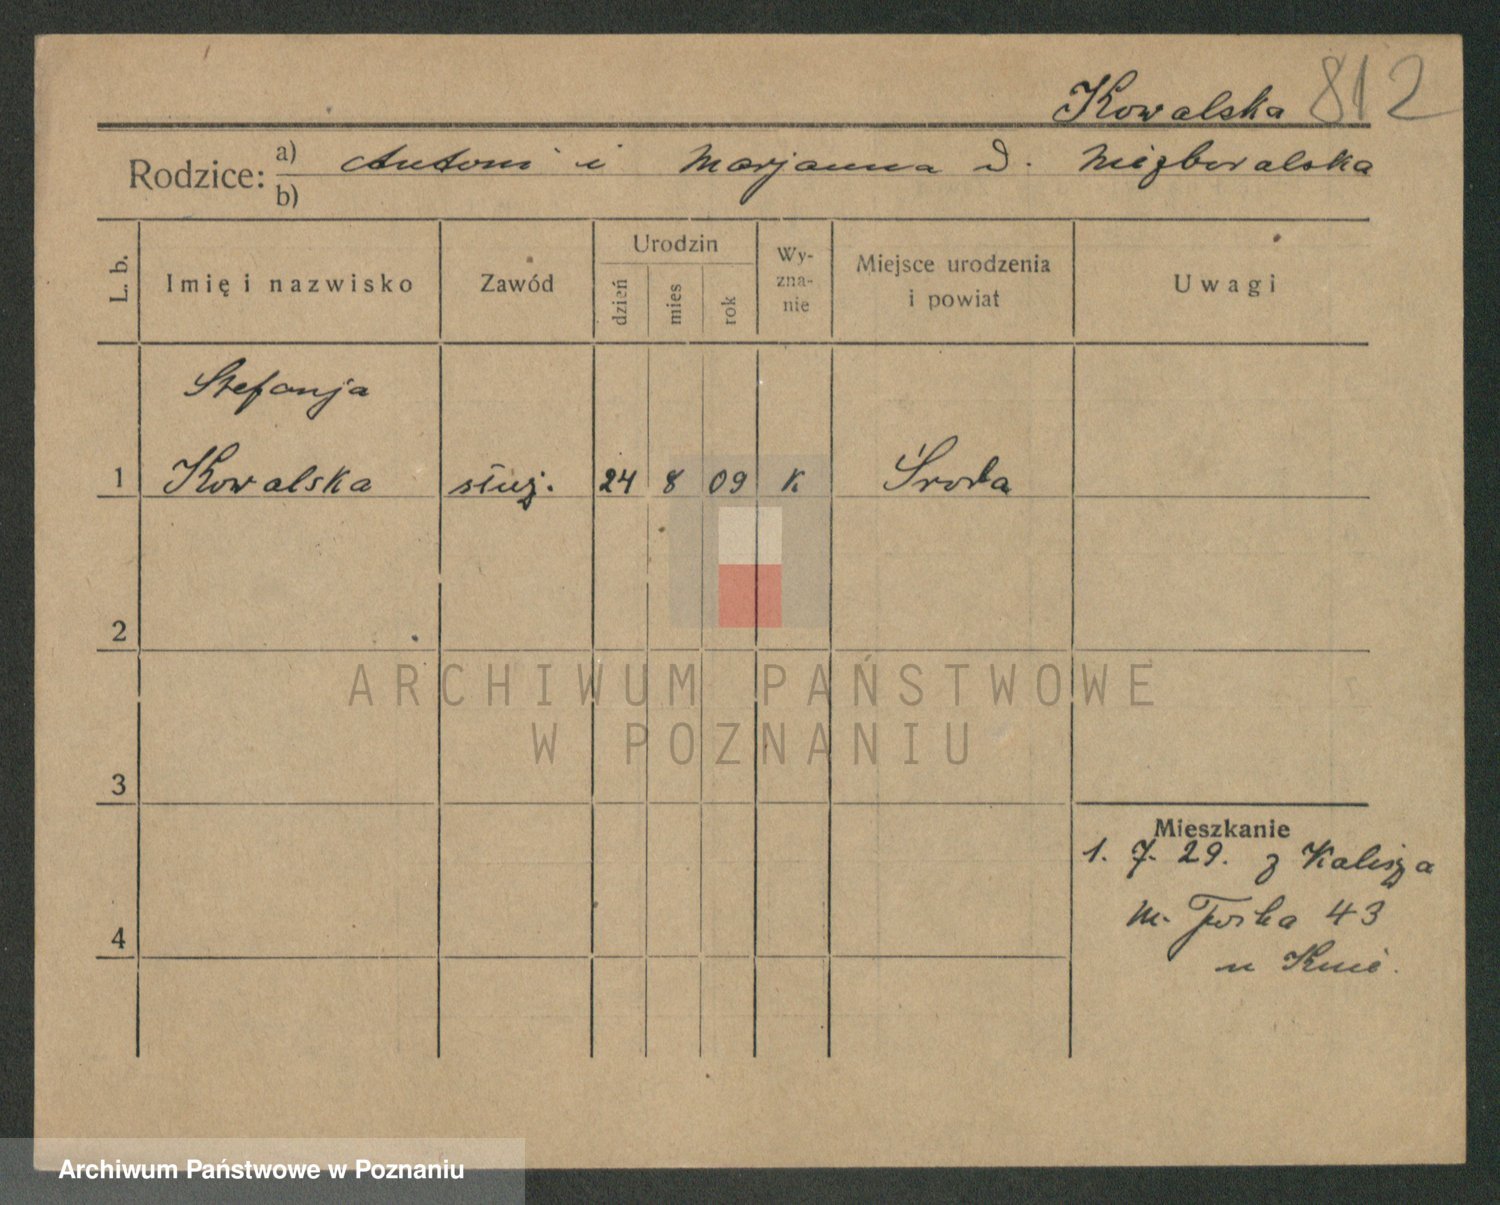 Kowalska 812
Rodzice: a) Antoni i Marjanna d. Niezboralska
b)
L. b. Imię i nazwisko Zawód Urodzin dzień mies rok Wy-zna-nie Miejsce urodzenia i powiat Uwagi
Stefanja
1 Kowalska służ. 24 8 09 k. Środa
2
ARCHIWUM PAŃSTWOWE
W POZNANIU
3
Mieszkanie
1. 7. 29. z Kalisza
4 m. 43
u
Archiwum Państwowe w Poznaniu